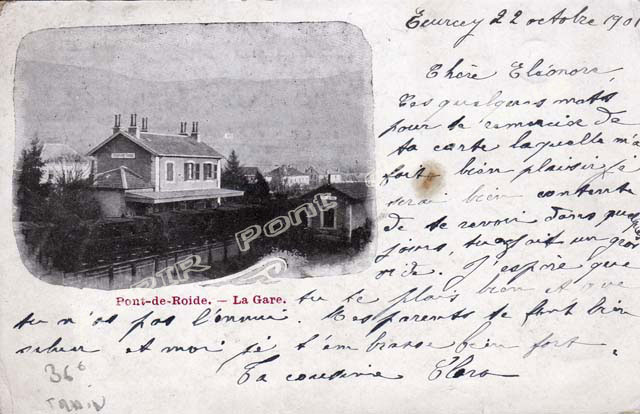 Teurcey 22 octobre 1901
Chère Eléonore,
Ces quelques mots
pour te remercier de
ta carte laquelle m'a
fort bien plaisir je
serai bien content
de te revoir dans
jours, tu fait un
vide. J'espère que
tu te plais bien et que
tu n'as pas l'ennui. Mes parents te font bien
saluer et moi je t'embrasse bien fort
Ta cousine Clara
Pont-de-Roide. — La Gare.
Pont
36